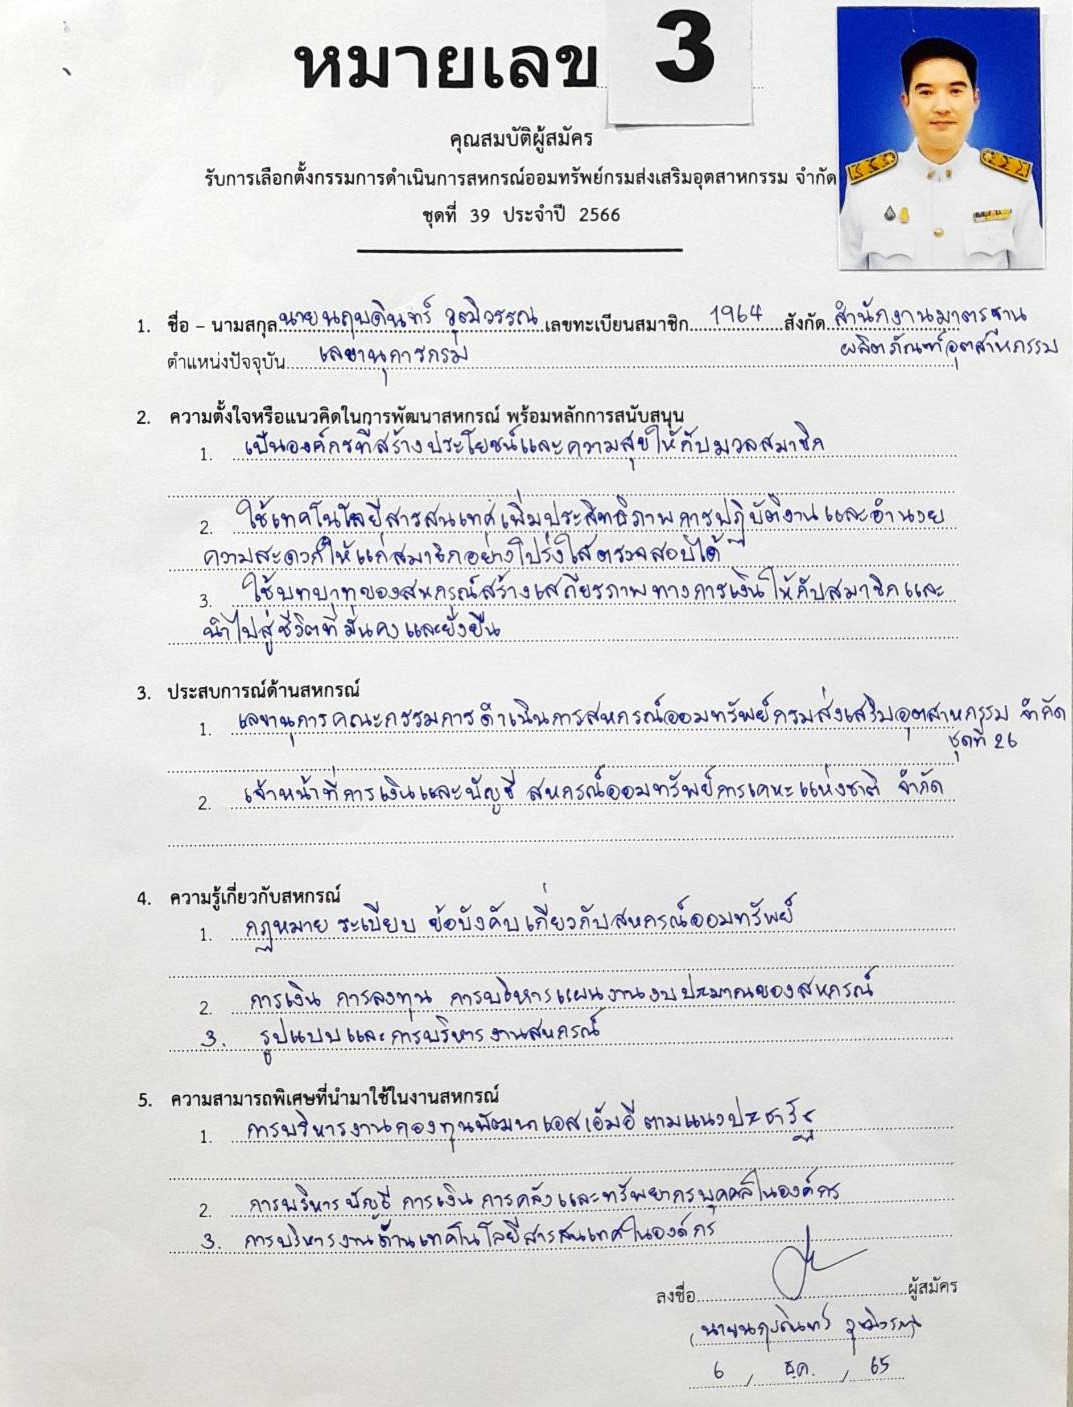 หมายเลข 3
คุณสมบัติผู้สมัคร
รับการเลือกตั้งกรรมการดำเนินการสหกรณ์ออมทรัพย์กรมส่งเสริมอุตสาหกรรม จำกัด
ชุดที่ 39 ประจำปี 2566
1. ชื่อ – นามสกุล นายนฤบดินทร์ วุฒิวรรณ เลขทะเบียนสมาชิก 1964 สังกัด สำนักงานมาตรฐาน
ผลิตภัณฑ์อุตสาหกรรม
ตำแหน่งปัจจุบัน เลขานุการกรม
2. ความตั้งใจหรือแนวคิดในการพัฒนาสหกรณ์ พร้อมหลักการสนับสนุน
1. เป็นองค์กรที่สร้างประโยชน์และความสุขให้กับมวลสมาชิก
2. ใช้เทคโนโลยีสารสนเทศเพิ่มประสิทธิภาพการปฏิบัติงานและอำนวย
ความสะดวกให้แก่สมาชิกอย่างโปร่งใสตรวจสอบได้
3. ใช้บทบาทของสหกรณ์สร้างเสถียรภาพทางการเงินให้กับสมาชิกและ
นำไปสู่ชีวิตที่มั่นคงและยั่งยืน
3. ประสบการณ์ด้านสหกรณ์
1. เลขานุการคณะกรรมการดำเนินการสหกรณ์ออมทรัพย์กรมส่งเสริมอุตสาหกรรม จำกัด
ชุดที่ 26
2. เจ้าหน้าที่การเงินและบัญชี สหกรณ์ออมทรัพย์การเคหะแห่งชาติ จำกัด
4. ความรู้เกี่ยวกับสหกรณ์
1. กฎหมาย ระเบียบ ข้อบังคับเกี่ยวกับสหกรณ์ออมทรัพย์
2. การเงิน การลงทุน การบริหารแผนงานงบประมาณของสหกรณ์
3. รูปแบบและการบริหารงานสหกรณ์
5. ความสามารถพิเศษที่นำมาใช้ในงานสหกรณ์
1. การบริหารงานกองทุนพัฒนาเอสเอ็มอีตามแนวประชารัฐ
2. การบริหารบัญชี การเงิน การคลังและทรัพยากรบุคคลในองค์กร
3. การบริหารงานด้านเทคโนโลยีสารสนเทศในองค์กร
ลงชื่อ ผู้สมัคร
(นายนฤบดินทร์ วุฒิวรรณ)
6 / ธ.ค. / 65